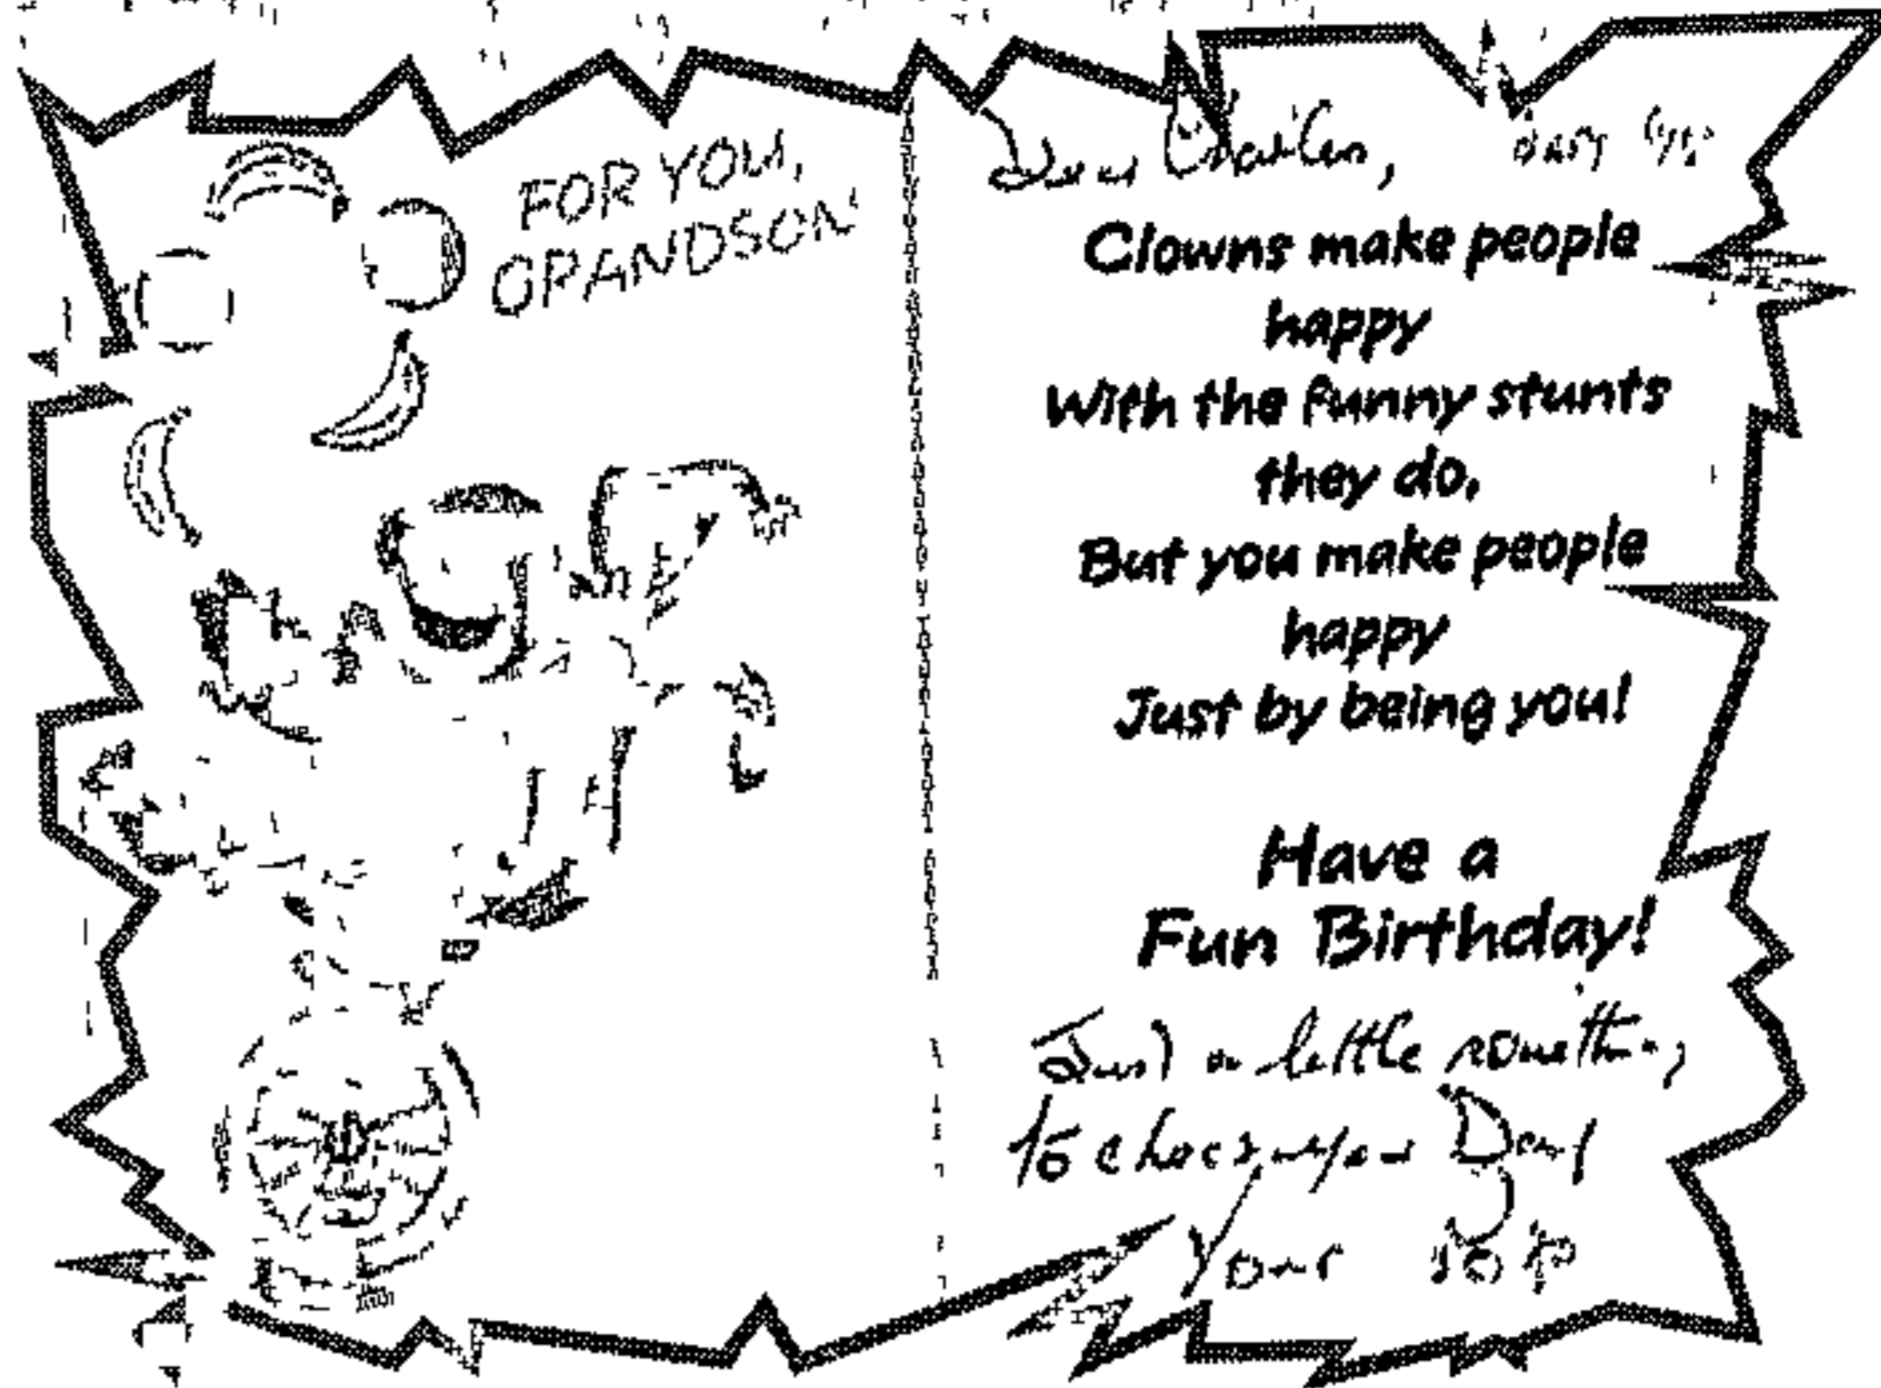 FOR YOU,
GRANDSON
Dear Charles,
Clowns make people
happy
With the funny stunts
they do,
But you make people
happy
Just by being you!
Have a
Fun Birthday!
Just a little something
to cheer your Day
Your